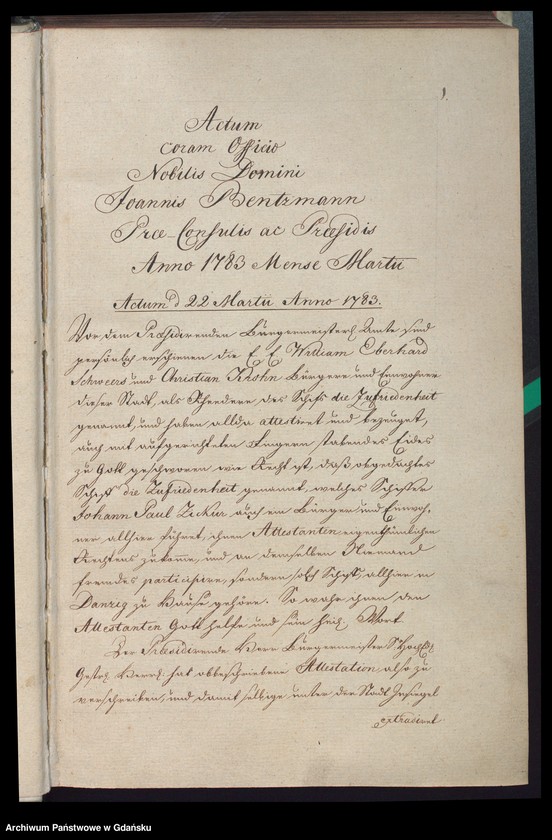 1.
Actum
coram Officio
Nobilis Domini
Joannis Bentzmann
Præ-Consulis ac Præsidis
Anno 1783 Mense Martii
Actum d 22 Martii Anno 1783.
Vor dem Præsidirenden Bürgermeisterl. Amte sind
persönlich erschienen die E E William Eberhard
Schweers und Christian Krohn Bürgere und Einwohner
dieser Stadt, als Rheedere des Schifs die Zufriedenheit
genannt, und haben allda attestiret und bezeuget,
auch mit aufgerichteten Fingern stabendes Eides
zu Gott geschworen wie Recht ist, daß obgedachtes
Schiff die Zufriedenheit genannt, welches Schiffer
Johann Paul Zickur auch ein Bürger und Einwoh-
ner allhier führet, ihnen Attestanten eigenthümlichen
Rechtens zukomme, und an demselben Niemand
fremdes participire, sondern solch Schiff, allhier in
Danzig zu Hause gehöre. So wahr ihnen den
Attestanten Gott helfe und sein heil. Wort
Der Præsidirende Herr Bürgermeister
Herrl. hat obbeschriebene Attestation also zu
verschreiben, und damit selbige unter der Stadt Insiegel
extradiret
Archiwum Państwowe w Gdańsku